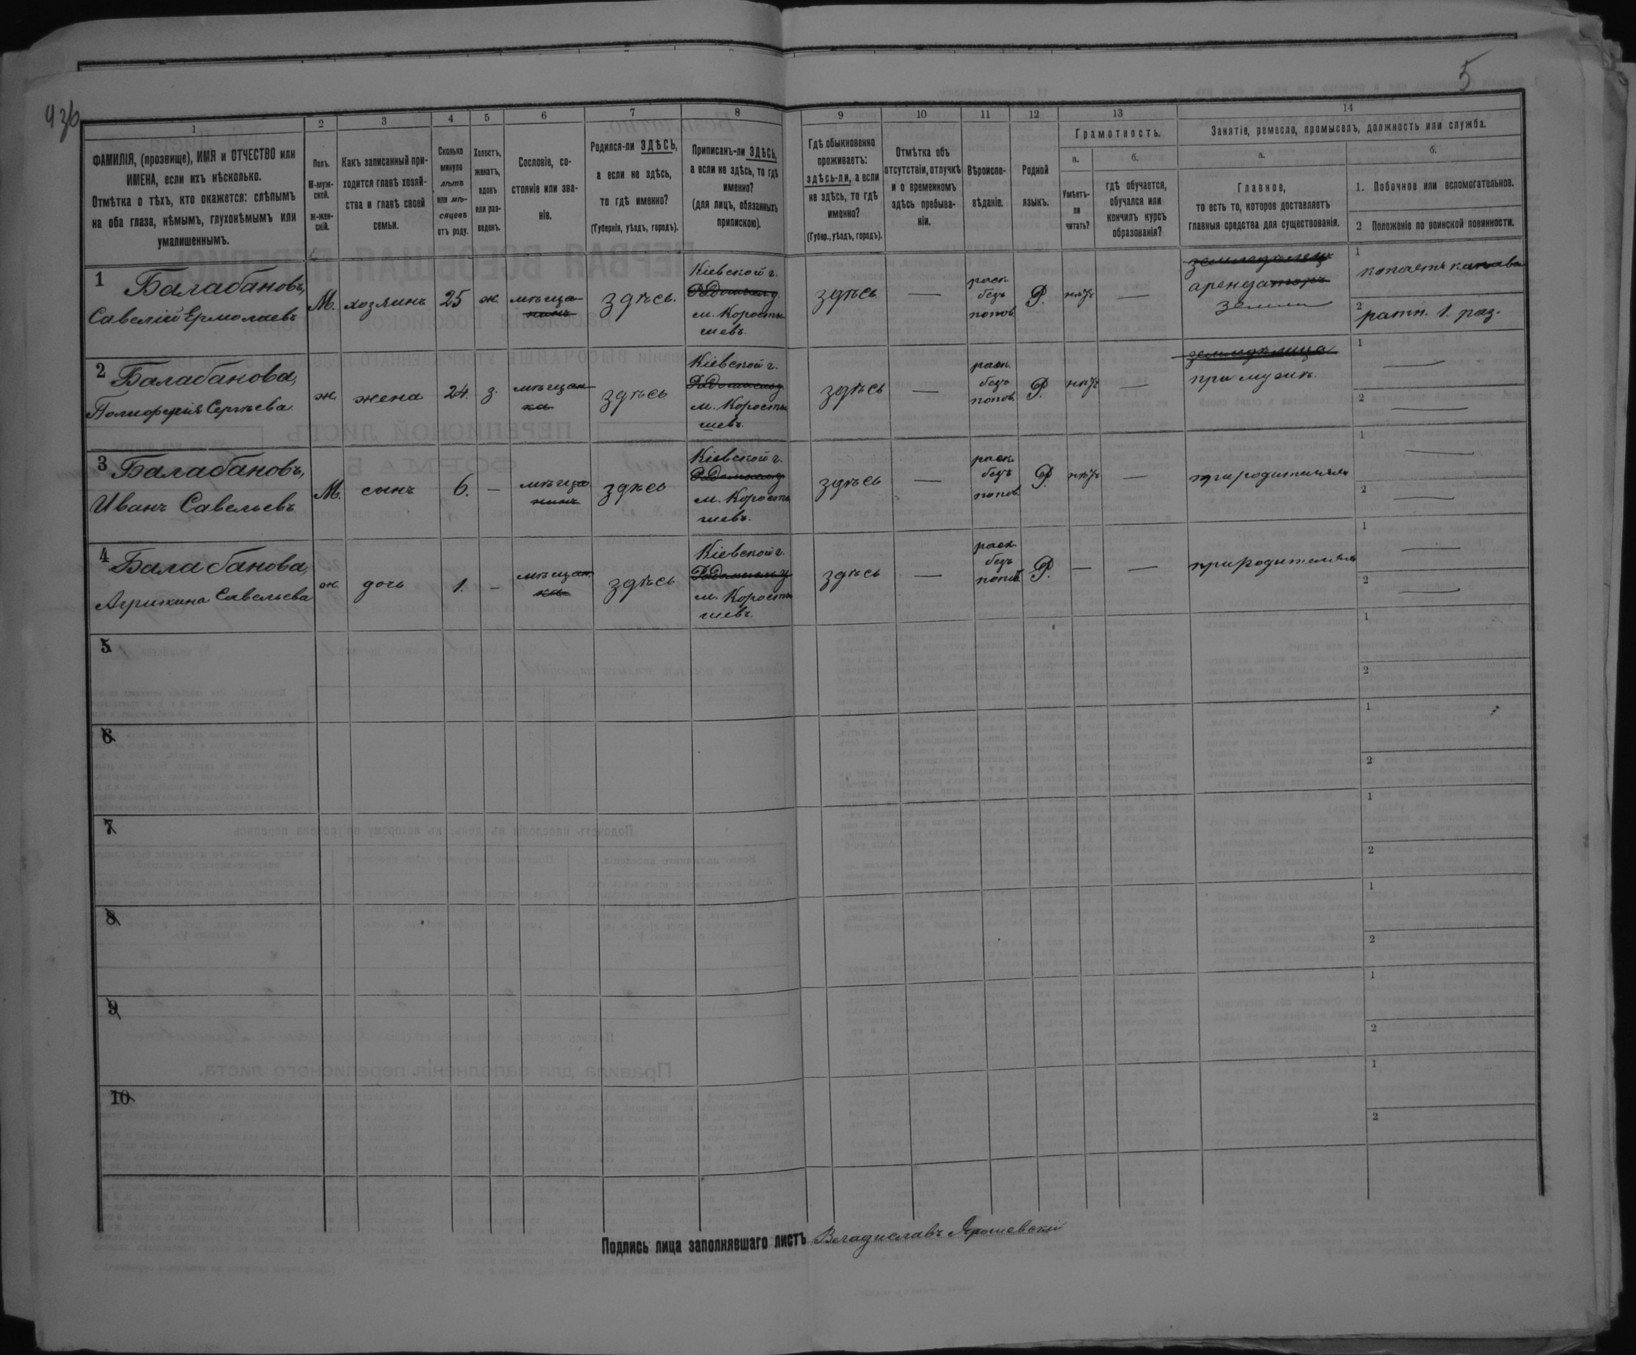 5
93б
1
2
3
4
5
6
7
8
9
10
11
12
13
14
ФАМИЛІЯ, (прозвище), ИМЯ и ОТЧЕСТВО или
ИМЕНА, если ихъ нѣсколько.
Отмѣтка о тѣхъ, кто окажется: слѣпымъ
на оба глаза, нѣмымъ, глухонѣмымъ или
умалишеннымъ.
Полъ.
М-муж-
ской.
Ж-жен-
скій.
Какъ записанный при-
ходится главѣ хозяй-
ства и главѣ своей
семьи.
Сколько
минуло
лѣтъ
или мѣ-
сяцевъ
отъ роду.
Холостъ,
женатъ,
вдовъ
или раз-
веденъ.
Сословіе, со-
стояніе или зва-
ніе.
Родился-ли ЗДѢСЬ,
а если не здѣсь,
то гдѣ именно?
(Губернія, уѣздъ, городъ).
Приписанъ-ли ЗДѢСЬ,
а если не здѣсь, то гдѣ
именно?
(для лицъ, обязанныхъ
припискою).
Гдѣ обыкновенно
проживаетъ:
здѣсь-ли, а если
не здѣсь, то гдѣ
именно?
(Губер., уѣздъ, городъ).
Отмѣтка объ
отсутствіи, отлучкѣ
и о временномъ
здѣсь пребыва-
ніи.
Вѣроиспо-
вѣданіе.
Родной
языкъ.
Грамотность.
а.
Умѣетъ-
ли
читать?
б.
гдѣ обучается,
обучался или
кончилъ курсъ
образованія?
Занятіе, ремесло, промыселъ, должность или служба.
а.
Главное,
то есть то, которое доставляетъ
главныя средства для существованія.
б.
1. Побочное или вспомогательное.
2 Положеніе по воинской повинности.
1 Балабановъ,
Савелій Ермолаевъ
М. хозяинъ 25 ж. мѣща
нинъ
здѣсь.
Кіевской г.
Радомысльу
м. Коросты
шевъ.
здѣсь —
раск.
безъ
попов
Р. нѣтъ —
земледѣлец
арендаторъ
земли
1
копаетъ канавы
2
ратн. 1. раз.
2 Балабанова,
Сергѣева
ж. жена 24. з. мѣщан
ка
здѣсь
Кіевской г.
Радомысльу
м. Коросты
шевъ.
здѣсь —
раск.
безъ
попов
Р. нѣтъ —
при мужѣ
1 —
2 —
3 Балабановъ,
Иванъ Савельевъ
М. сынъ 6. — мѣща
нинъ
здѣсь
Кіевской г.
Радомысльу
м. Коросты
шевъ.
здѣсь —
раск.
безъ
попов
Р. нѣтъ —
при родителяхъ
1 —
2 —
4 Балабанова,
Савельева
ж. дочь 1. — мѣщан
ка
здѣсь
Кіевской г.
Радомысльу
м. Коросты
шевъ.
здѣсь —
раск.
безъ
попов
Р. — —
при родителяхъ
1 —
2 —
5
1
2
6
1
2
7
1
2
8
1
2
9
1
2
10
1
2
Подпись лица заполнявшаго листъ Владиславъ Ярошевскій